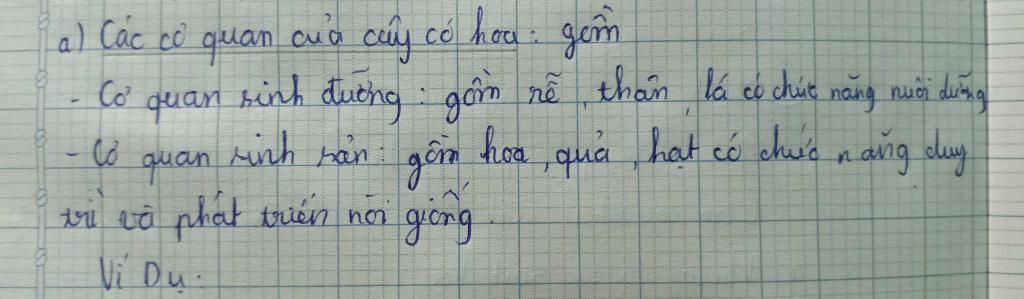 a) Các cơ quan của cây có hoa: gồm
- Cơ quan sinh dưỡng: gồm rễ, thân, lá có chức năng nuôi dưỡng
- Cơ quan sinh sản: gồm hoa, quả, hạt có chức năng duy
trì và phát triển nòi giống.
Ví Dụ: